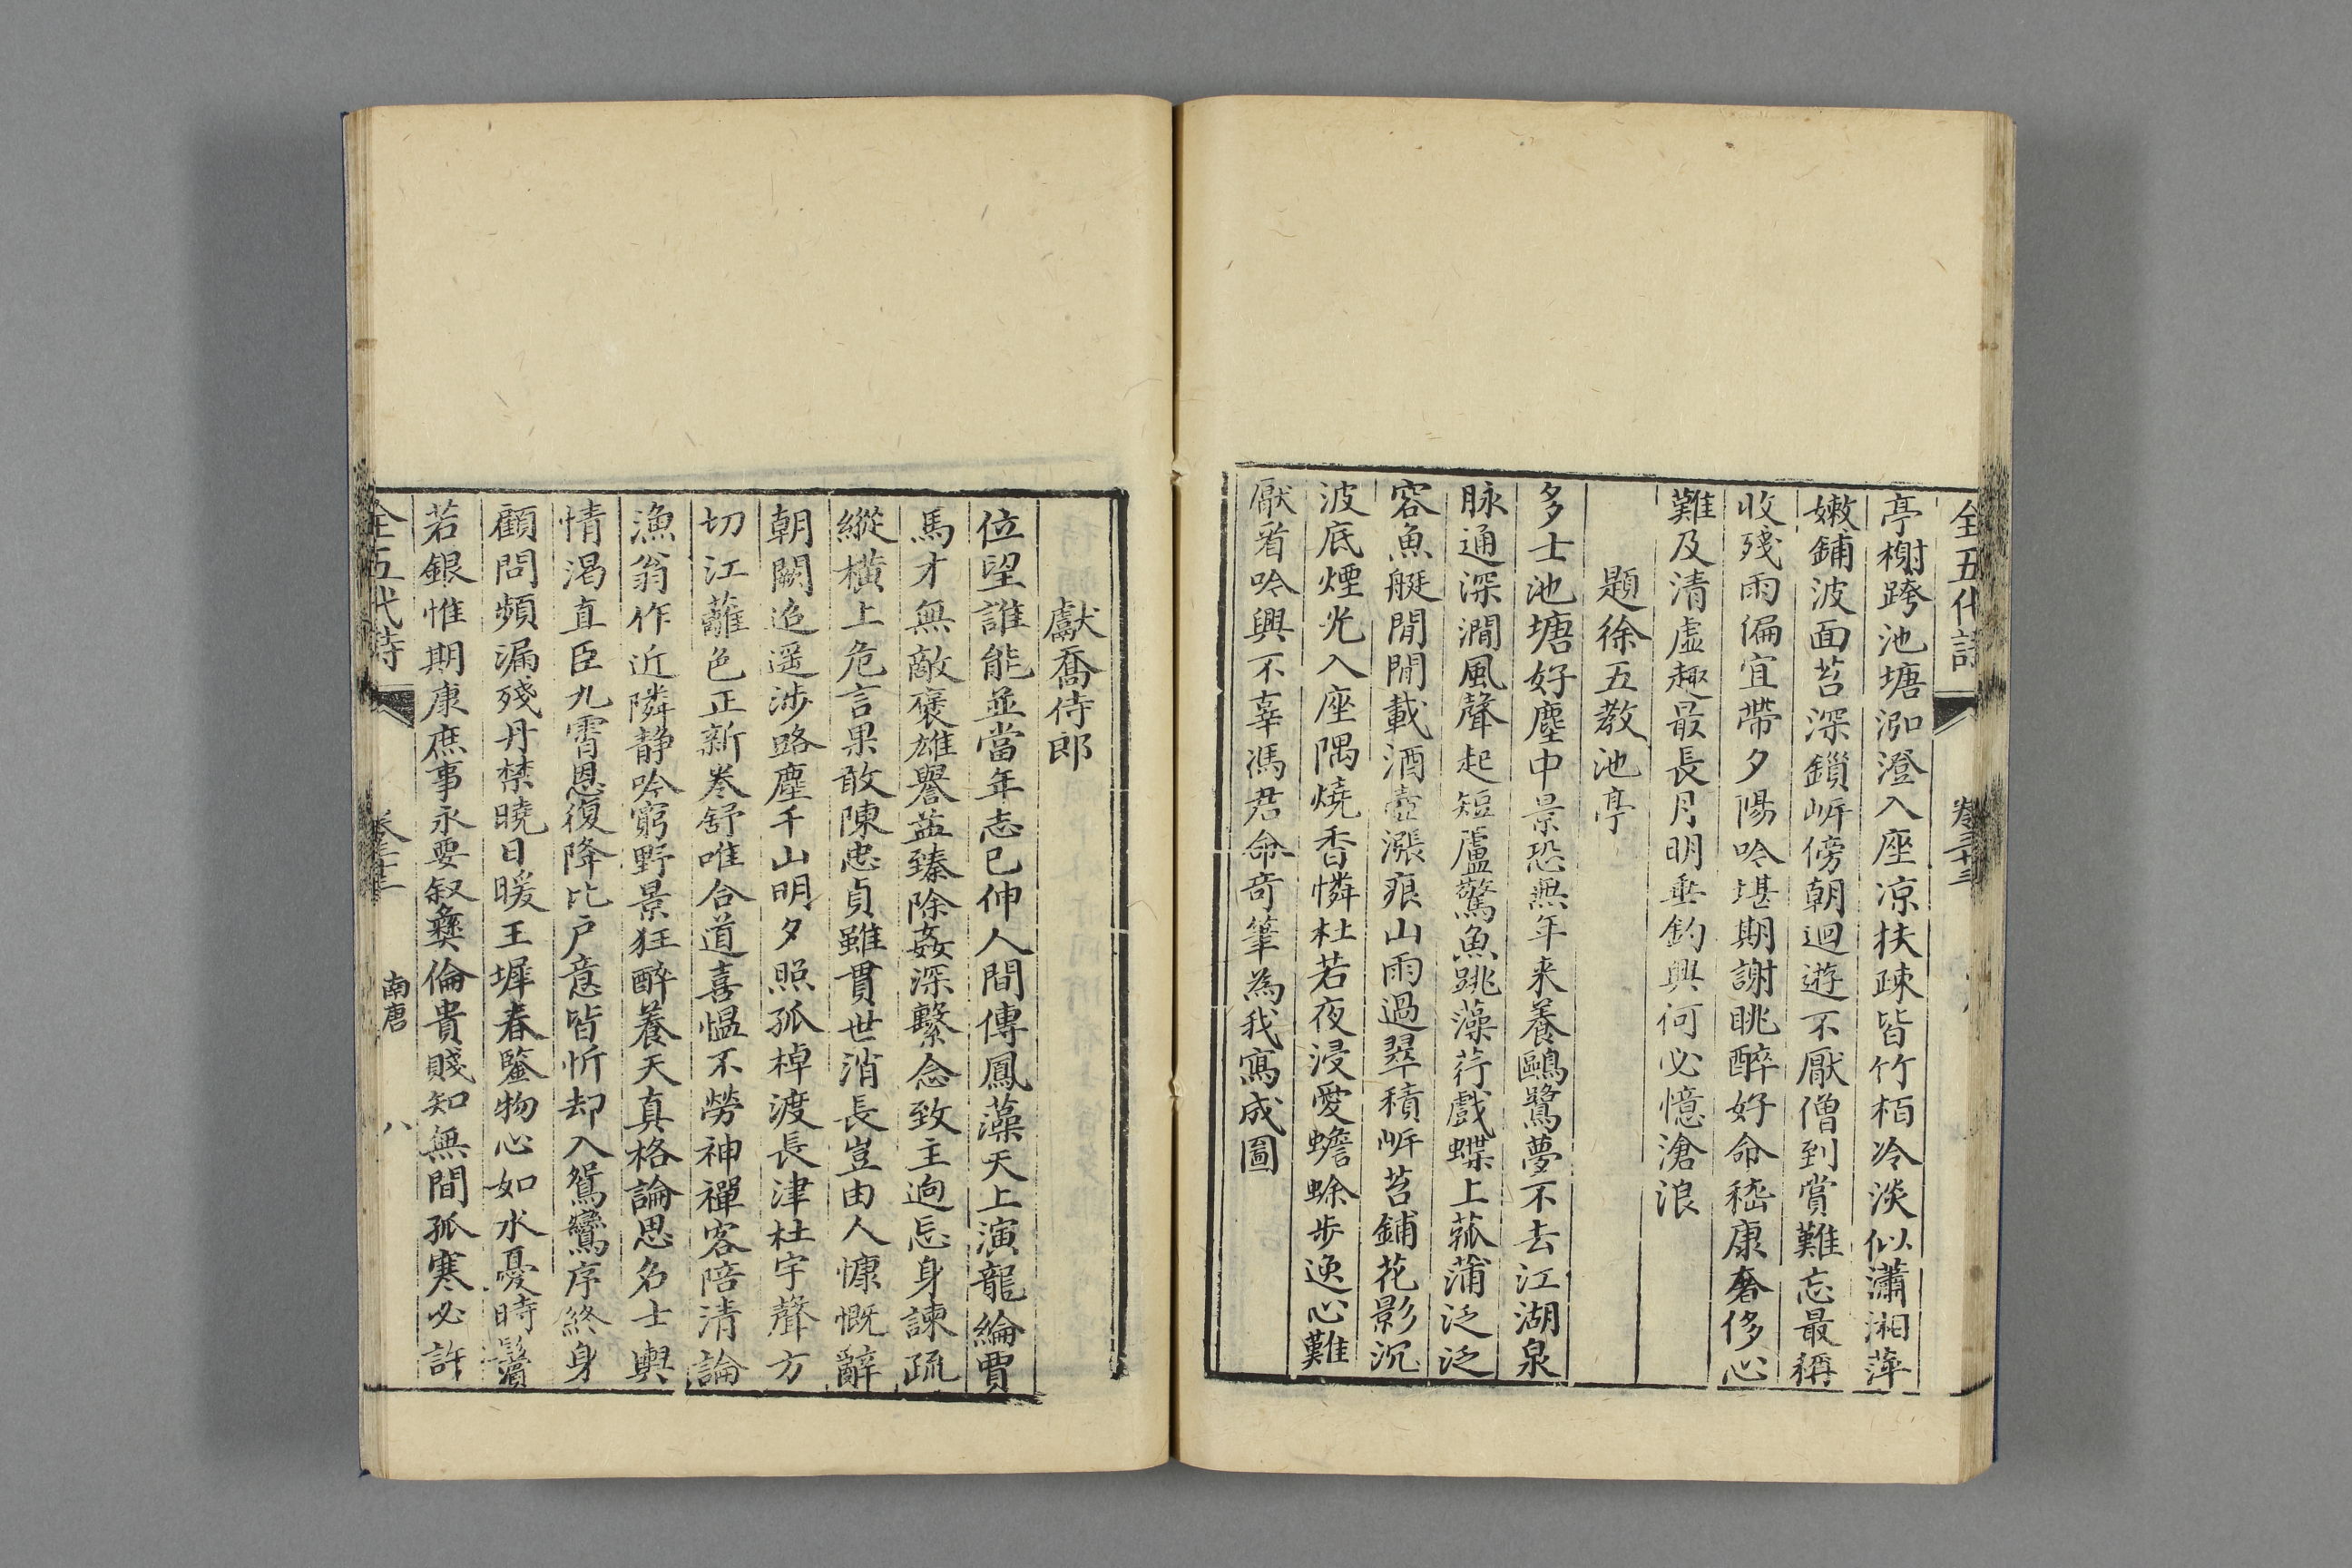 全五代詩 卷三十三
亭榭跨池塘泓澄入座凉扶疎皆竹柏冷淡似瀟湘萍
嫩鋪波面苔深鎖岸傍朝迴遊不厭僧到賞難忘最稱
收殘雨偏宜帶夕陽吟堪期謝眺醉好命嵇康奢侈心
難及清虛趣最長月明垂釣興何必憶滄浪
題徐五教池亭
多士池塘好塵中景恐無年來養鷗鷺夢不去江湖泉
脉通深澗風聲起短蘆驚魚跳藻荇戲蝶上菰蒲泛泛
容魚艇閒閒載酒壺漲痕山雨過翠積岸苔鋪花影沉
波底煙光入座隅燒香憐杜若夜浸愛蟾蜍步逸心難
厭看吟興不辜馮君命奇筆為我寫成圖
獻喬侍郎
位望誰能並當年志已伸人間傳鳳藻天上演龍綸賈
馬才無敵褒雄譽益臻除姦深繫念致主迥忘身諫疏
縱横上危言果敢陳忠貞雖貫世消長豈由人慷慨辭
朝闕迢遥涉路塵千山明夕照孤棹渡長津杜宇聲方
切江蘺色正新卷舒唯合道喜愠不勞神禪客陪清論
漁翁作近隣静吟窮野景狂醉養天真格論思名士輿
情渴直臣九霄恩復降比户意皆忻却入鴛鸞序終身
顧問頻漏殘丹禁曉日暖王墀春鑒物心如水憂時鬢
若銀惟期康庶事永要叙彝倫貴賤知無間孤寒必許
全五代詩 卷三十三 南唐 八